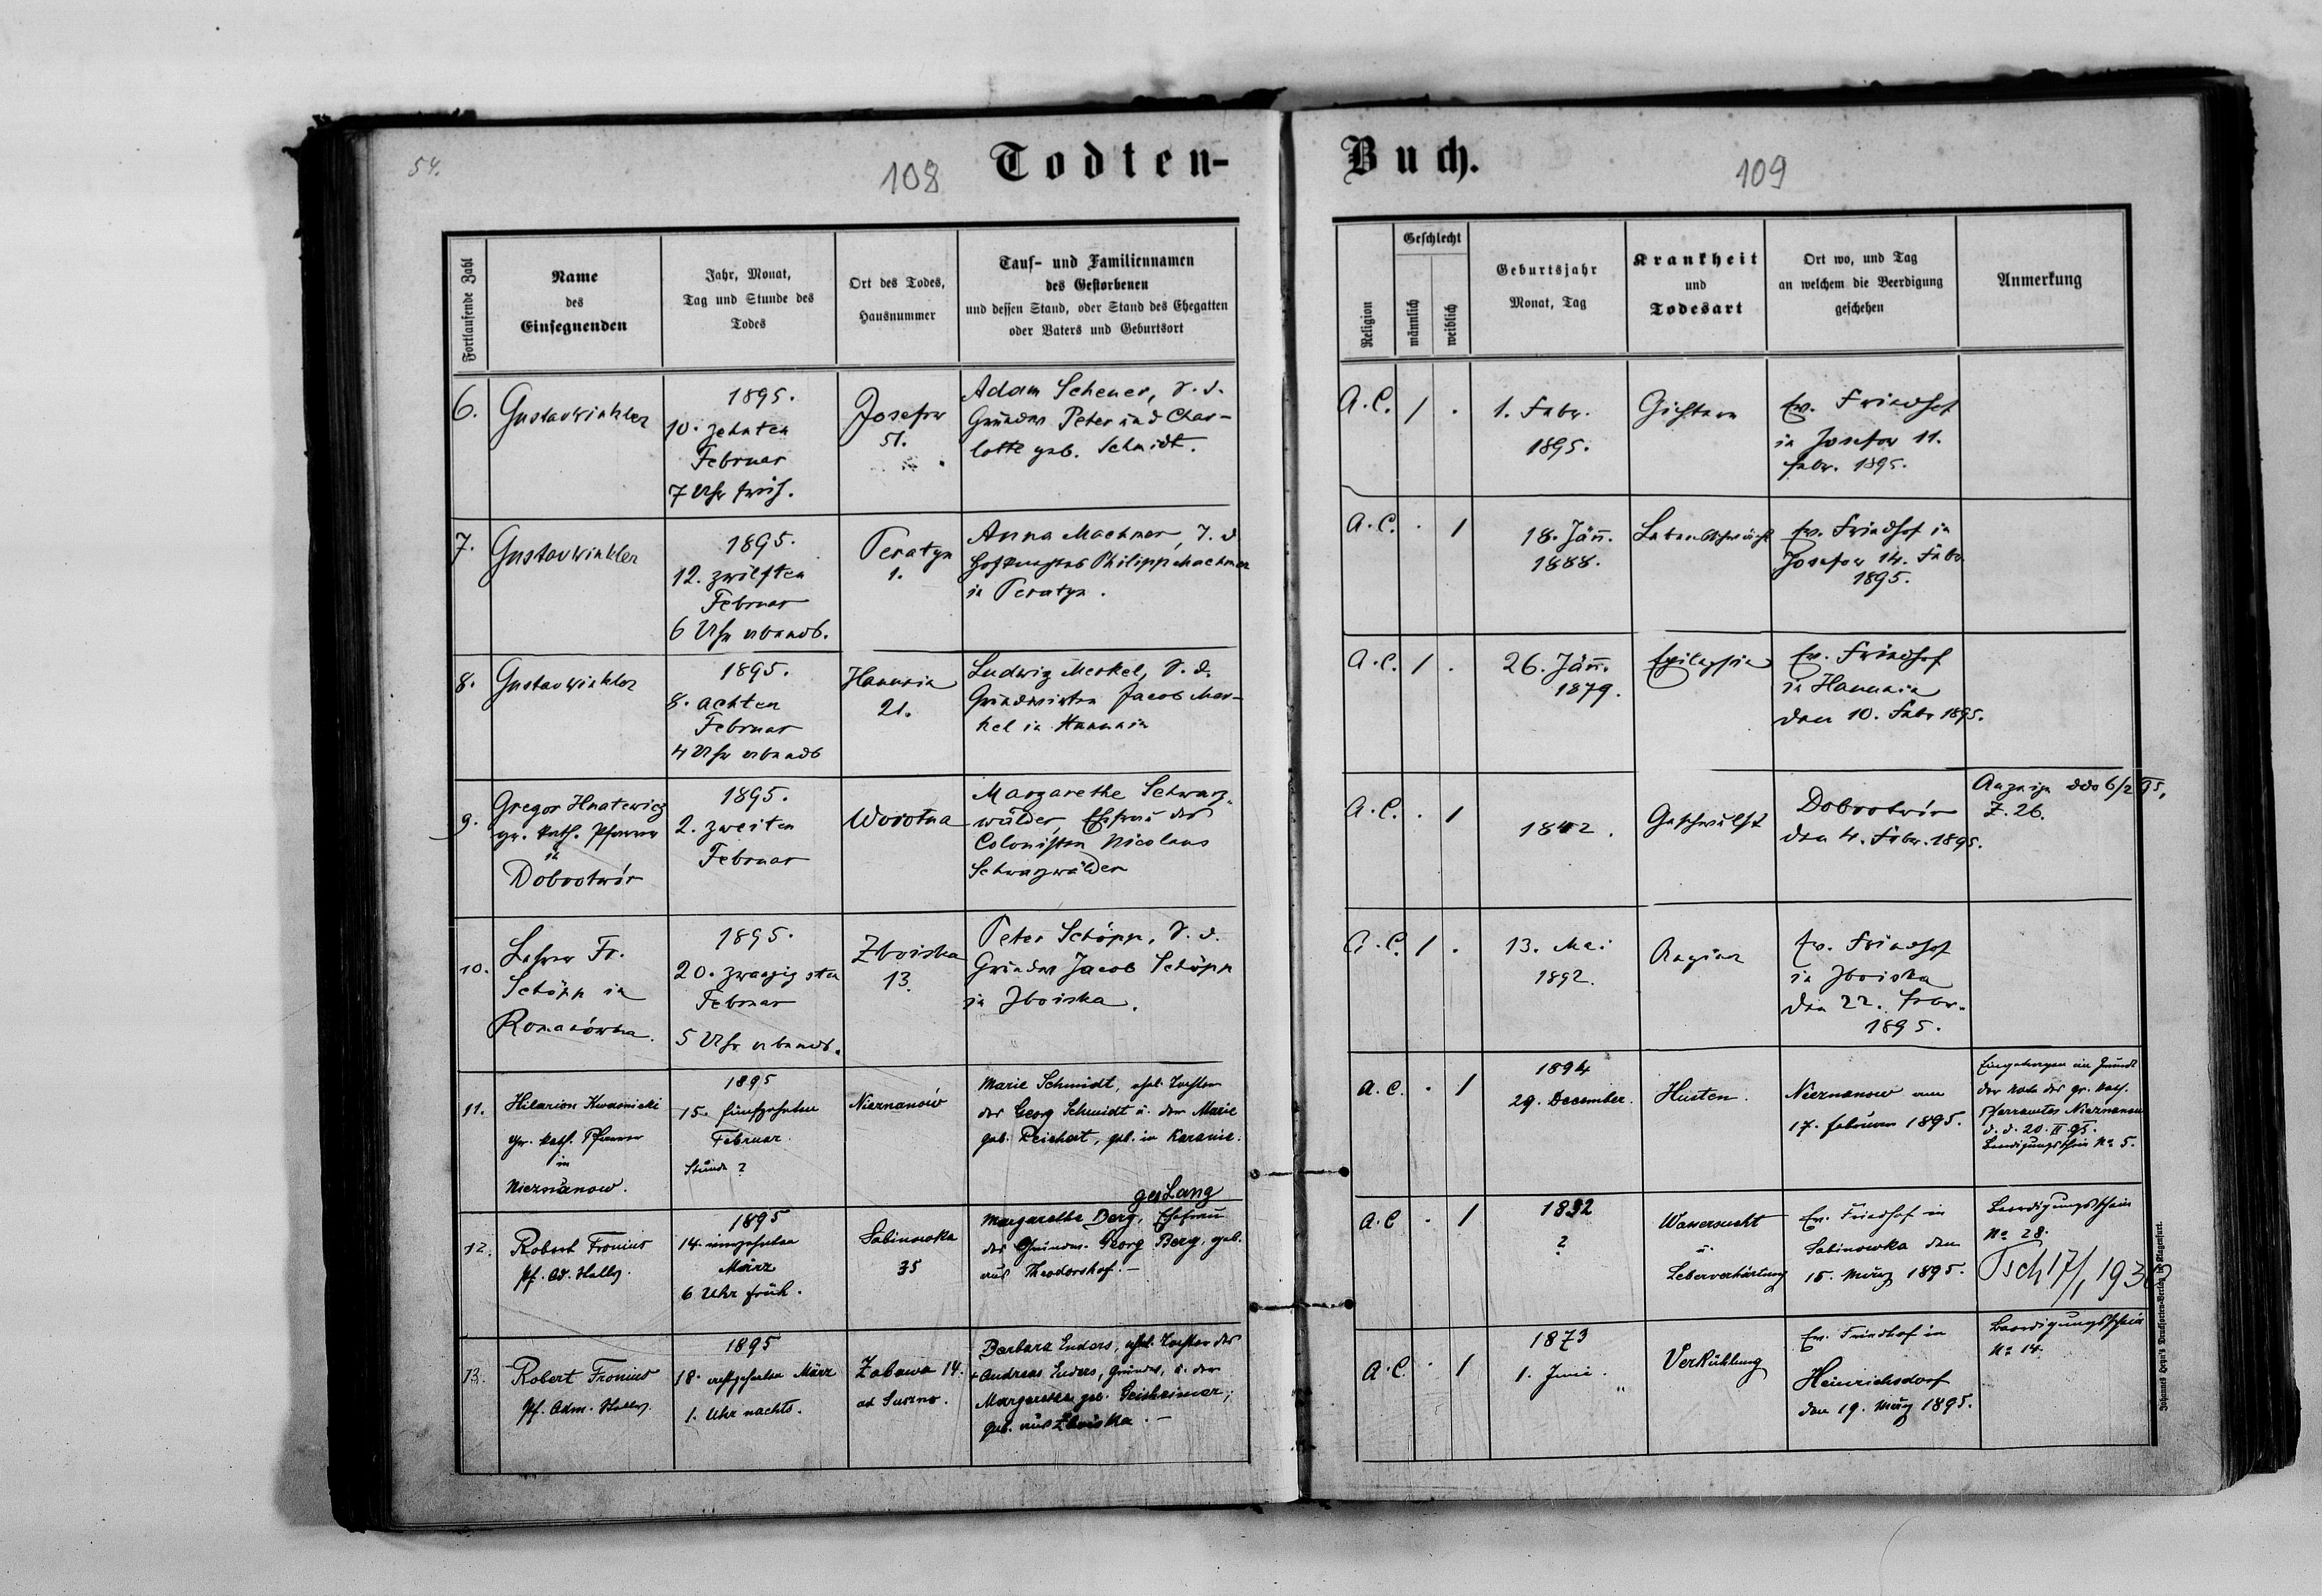 54.
108
Todten-
Fortlaufende Zahl
Name
des
Einsegnenden
Jahr, Monat,
Tag und Stunde des
Todes
Ort des Todes,
Hausnummer
Tauf- und Familiennamen
des Gestorbenen
und dessen Stand, oder Stand des Ehegatten
oder Vaters und Geburtsort
6.
Gustav Winkler
1895.
10. zehnten
Februar
7 Uhr früh.
Josefow
51.
Adam Scheuer, S. d.
Grundw. Peter und Char-
lotte geb. Schmidt.
7.
Gustav Winkler
1895.
12. zwölften
Februar
6 Uhr abends.
Peratyn
1.
Anna Machmer, T. d.
Philipp Machmer
in Peratyn.
8.
Gustav Winkler
1895.
8. achten
Februar
4 Uhr abends
Hanunin
21.
Ludwig Merkel, S. d.
Grundwirten Jacob Mer-
kel in Hanunin
9.
Gregor Hnatewicz
gr. kath. Pfarrer
in
Dobrotwór
1895.
2. zweiten
Februar
Worotna
Margarethe Schwarz-
wälder, Ehefrau des
Colonisten Nicolaus
Schwarzwälder
10.
Lehrer Fr.
Schöpp in
Romanówka.
1895.
20. zwanzigsten
Februar
5 Uhr abends.
Zboiska
13.
Peter Schöpp, S. d.
Grundw. Jacob Schöpp
in Zboiska.
11.
Hilarion Kwasnicki
gr. kath. Pfarrer
in
Nieznanow.
1895
15. fünfzehnten
Februar.
Stunde ?
Nieznanów
Marie Schmidt, ehel. Tochter
des Georg Schmidt u. der Marie
geb. Reichert, geb. in Karanie.
12.
Robert Fronius
Pf. Ad. Stellv.
1895
14. vierzehnten
März
6 Uhr früh.
Sabinowka
35
geb Lang
Margarethe Berg, Ehefrau
des Grundw. Georg Berg, geb.
aus Theodorshof. –
13.
Robert Fronius
Pf. Adm. Stellv.
1895
18. achtzehnten März
1. Uhr nachts.
Zabawa 14.
ad Suszno.
Barbara Enders, ehel. Tochter des
+ Andreas Enders, Grundw., u. der
Margarethe geb. Geisheimer,
geb. aus Zboiska. –
Buch.
109
Religion
Geschlecht
männlich
weiblich
Geburtsjahr
Monat, Tag
Krankheit
und
Todesart
Ort wo, und Tag
an welchem die Beerdigung
geschehen
Anmerkung
A. C.
1
.
1. Febr.
1895.
Gichtern
Ev. Friedhof
in Josefow 11.
Febr. 1895.
A. C.
.
1
18. Jänn.
1888.
Lebensschwäche
Ev. Friedhof in
Josefow 14. Febr
1895.
A. C.
1
.
26. Jänn.
1879.
Epilepsie
Ev. Friedhof
in Hanunin
den 10. Febr 1895.
A. C.
.
1
1842.
Geschwulst
Dobrotwór
den 4. Febr. 1895.
Anzeige ddo 6/2 95,
Z. 26.
A. C.
1
.
13. Mai
1892.
Angina
Ev. Friedhof
in Zboiska
den 22. Febr.
1895.
A. C.
.
1
1894
29. December.
Husten.
Nieznanow am
17. Februar 1895.
Eingetragen im Grunde
der Note des gr. kath.
Pfarramtes Nieznanow
d. d. 20. II 95.
Beerdigungsschein No 5.
A. C
.
1
1832
?
Wassersucht
u.
Leberverhärtung
Ev. Friedhof in
Sabinowka den
15. März 1895.
Beerdigungsschein
No 28.
A. C.
.
1
1873
1. Juni.
Verkühlung
Ev. Friedhof in
Heinrichsdorf
den 19. März 1895.
Beerdigungsschein
No 14.
Johannes Heyn's Drucksorten-Verlag in Klagenfurt.